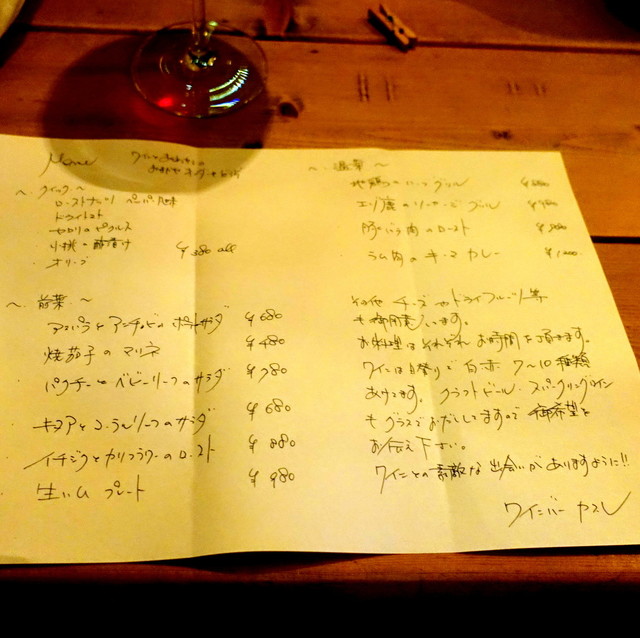 Menu
～ クイック ～
ローストナッツ ペッパー風味
ドライトマト
セロリのピクルス
小桃の 漬け
オリーブ
¥380 all
～ 前菜 ～
アスパラとアンチョビのポテトサラダ ¥680
焼茄子のマリネ ¥480
パクチーとベビーリーフのサラダ ¥780
キヌアとコーラルリーフのサラダ ¥680
イチジクとカリフラワーのロースト ¥880
生ハム プレート ¥980
～ 温菜 ～
地鶏のハーブグリル
エゾ鹿のソーセージグリル
豚バラ肉のロースト
ラム肉のキーマカレー
その他 チーズやドライフルーツ等
も御用意しています。
お料理はそれぞれお時間を頂きます。
ワインは日替りで白赤 7～10種類
あけてます。クラフトビール・スパークリングワイン
もグラスでお出ししてますので御希望を
お伝え下さい。
ワインとの素敵な出会いがありますように!!
ワインバー